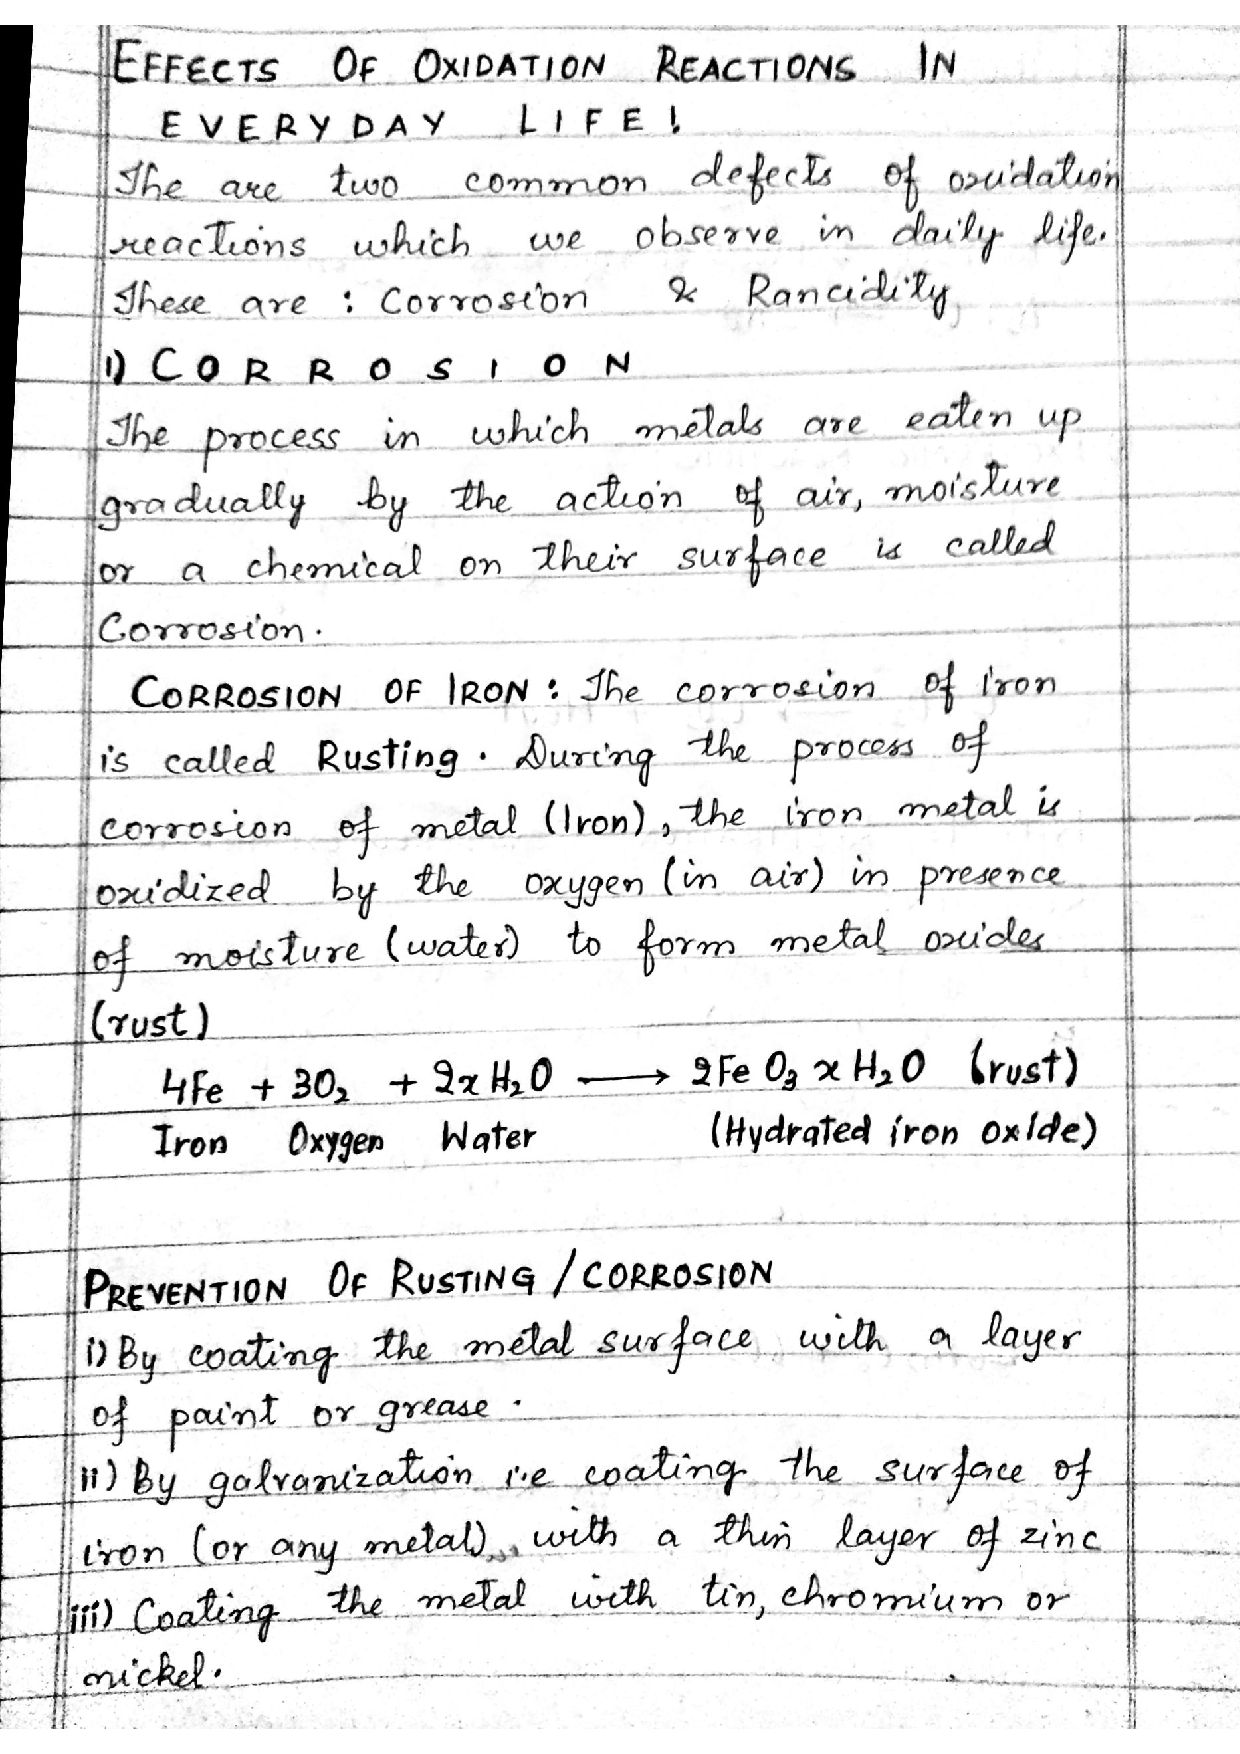 EFFECTS OF OXIDATION REACTIONS IN
EVERYDAY LIFE!
The are two common defects of oxidation
reactions which we observe in daily life.
These are : Corrosion & Rancidity
1) CORROSION
The process in which metals are eaten up
gradually by the action of air, moisture
or a chemical on their surface is called
Corrosion.
CORROSION OF IRON : The corrosion of iron
is called Rusting. During the process of
corrosion of metal (Iron), the iron metal is
oxidized by the oxygen (in air) in presence
of moisture (water) to form metal oxides
(rust)
4Fe + 3O₂ + 2xH₂O ⟶ 2FeO₃xH₂O (rust)
Iron Oxygen Water (Hydrated iron oxide)
PREVENTION OF RUSTING / CORROSION
i) By coating the metal surface with a layer
of paint or grease.
ii) By galvanization i.e coating the surface of
iron (or any metal) with a thin layer of zinc
iii) Coating the metal with tin, chromium or
nickel.